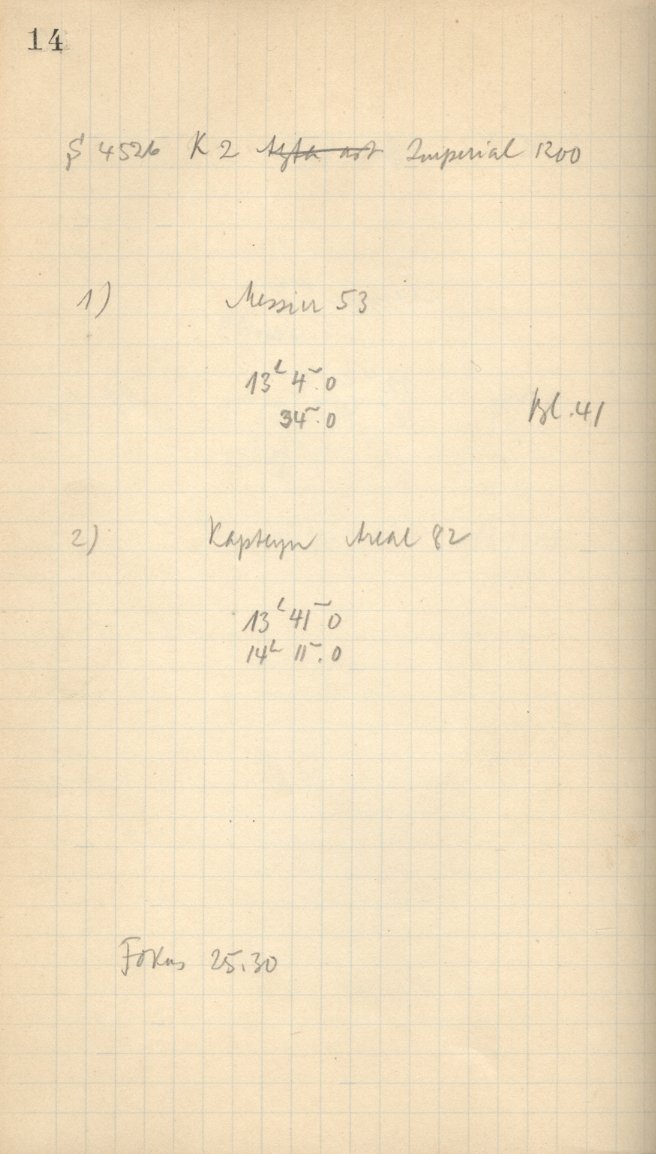 14
S 4526 K 2 Agfa rot Imperial 1200
1) Messier 53
13h 4m.0
34m.0
Bl. 41
2) Kapteyn Areal 82
13h 41m 0
14h 11m.0
Fokus 25.30